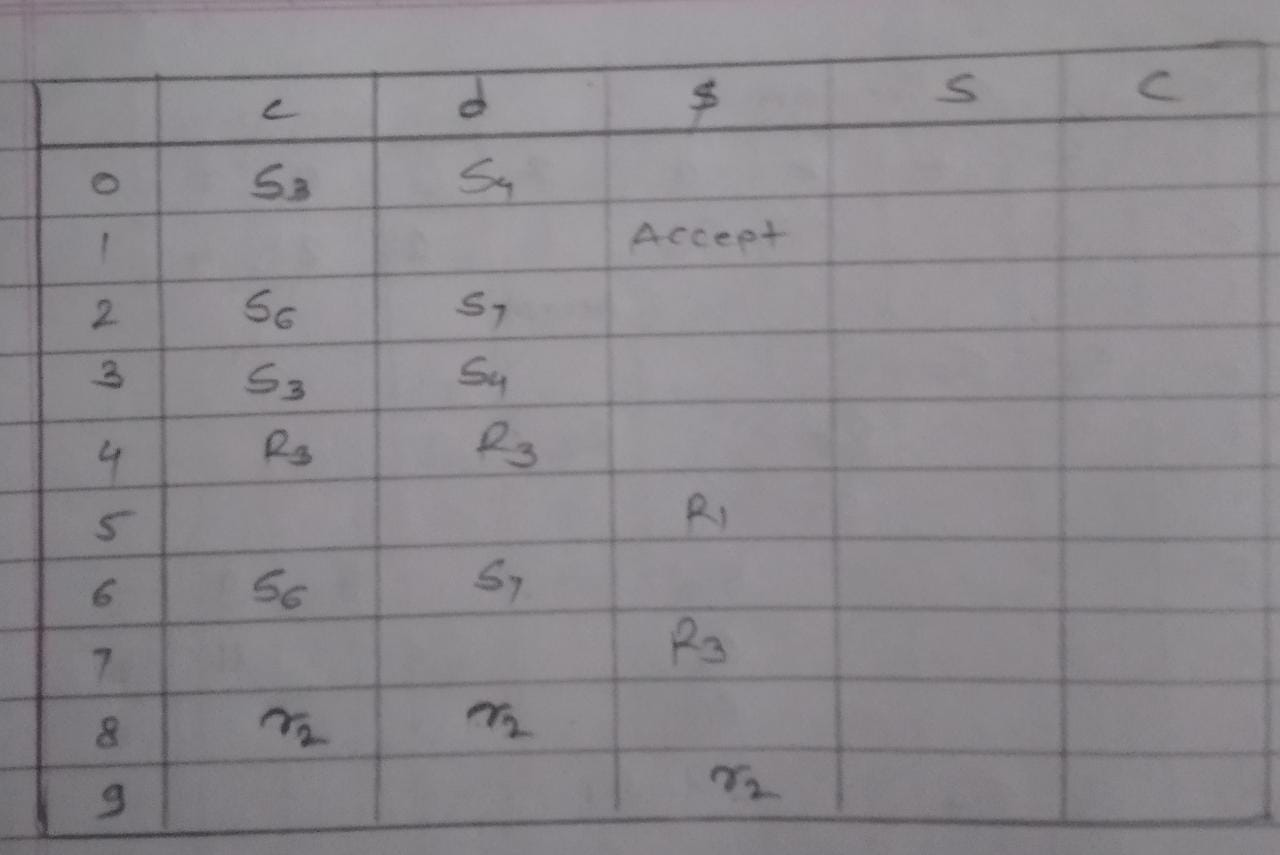 c d $ S C
0 S3 S4
1 Accept
2 S6 S7
3 S3 S4
4 R3 R3
5 R1
6 S6 S7
7 R3
8 r2 r2
9 r2